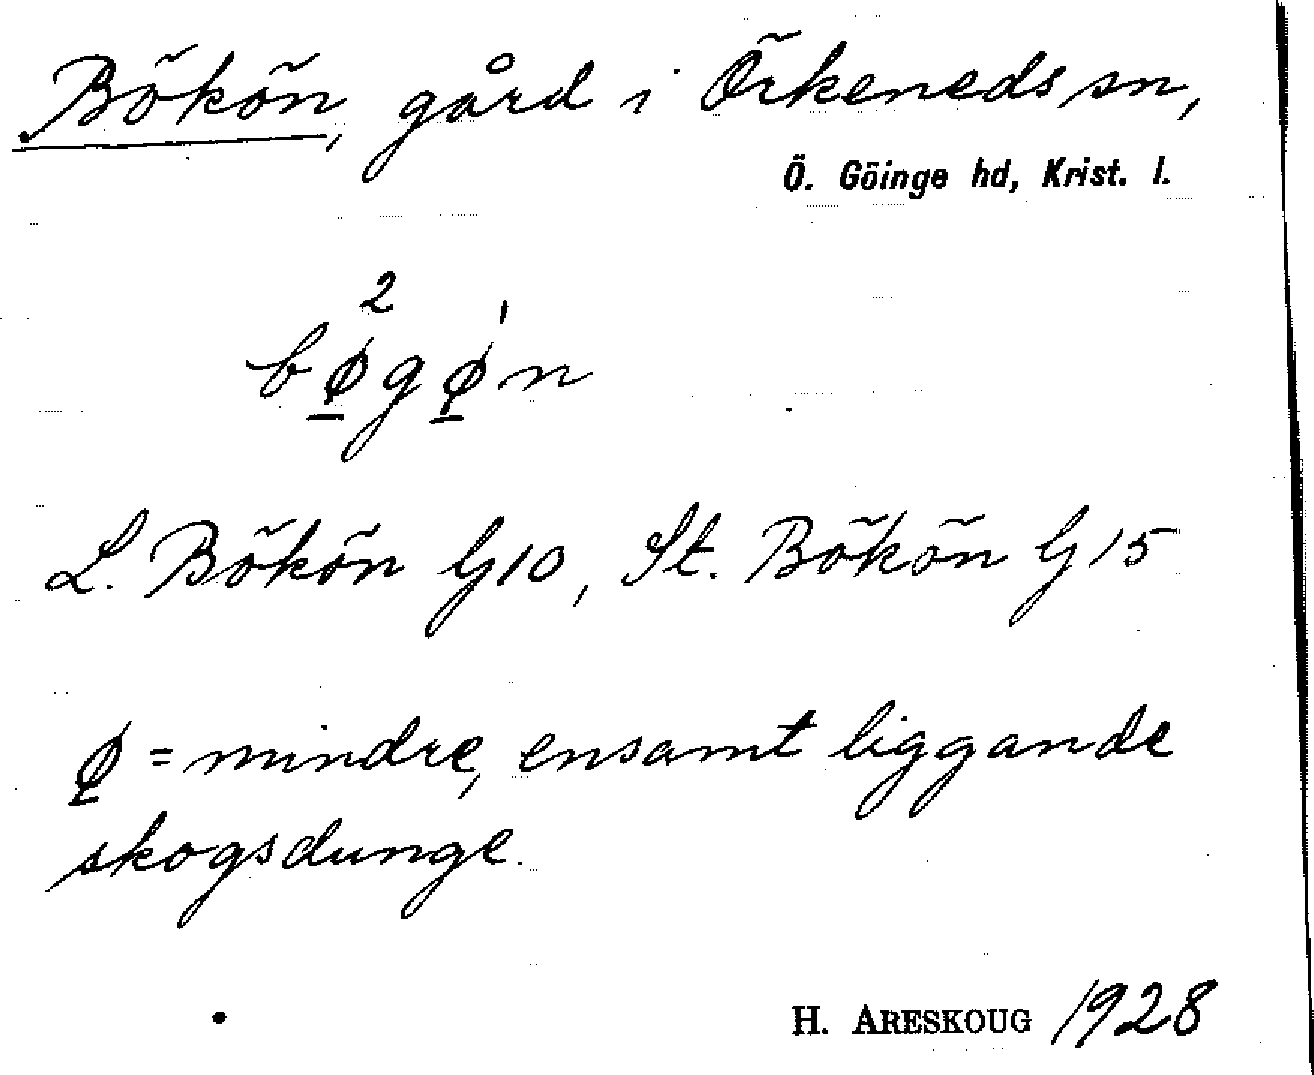 Bökön, gård i Örkeneds sn,
Ö. Göinge hd, Krist. l.
bø̱²gø̱ˈn
L. Bökön G10, St. Bökön G15
ø̱ = mindre, ensamt liggande
skogsdunge.
H. ARESKOUG 1928